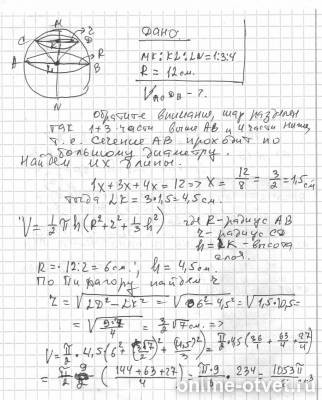 M
C D r
K
A L B R
N
Дано
MK:KL:LN=1:3:4
R = 12см.
V_ACDB - ?
Обратите внимание, шар разделен
так 1+3 части выше AB и 4 части ниже,
т.е. сечение AB проходит по
большому диаметру.
Найдем их длины.
1x+3x+4x=12 => x = 12/8 = 3/2 = 1,5см
тогда LK = 3*1,5 = 4,5см.
V = 1/2 πh(R²+r²+1/3 h²) где R - радиус AB
r - радиус CD
h = LK - высота
слоя.
R = 12:2 = 6см.; h = 4,5см.
По Пифагору найдем r
r = √(LD²-LK²) = √(6²-4,5²) = √(1,5·10,5) =
= √(9·7/4) = 3/2 √7 см. =>
V = π/2 · 4,5(6² + (3√7/2)² + (4,5)²/3) = π/2 · 4,5(36/1 + 63/4 + 27/4)
= π/2 · 9/2 · (144+63+27/4) = π·9 · 234 = 1053π
online-otvet.ru